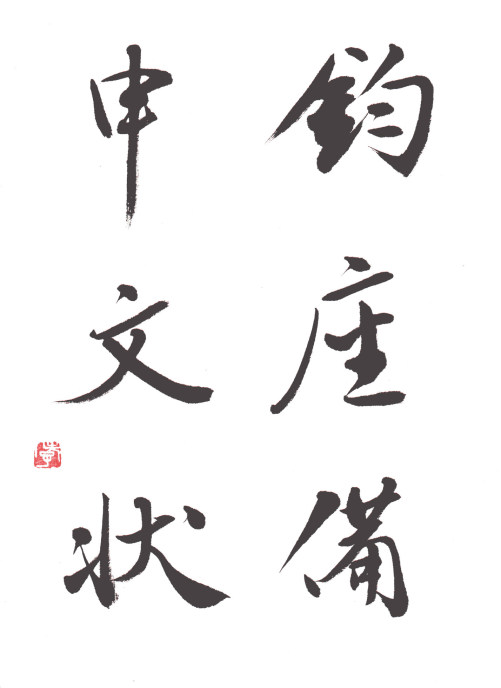 鈞座備
申文状